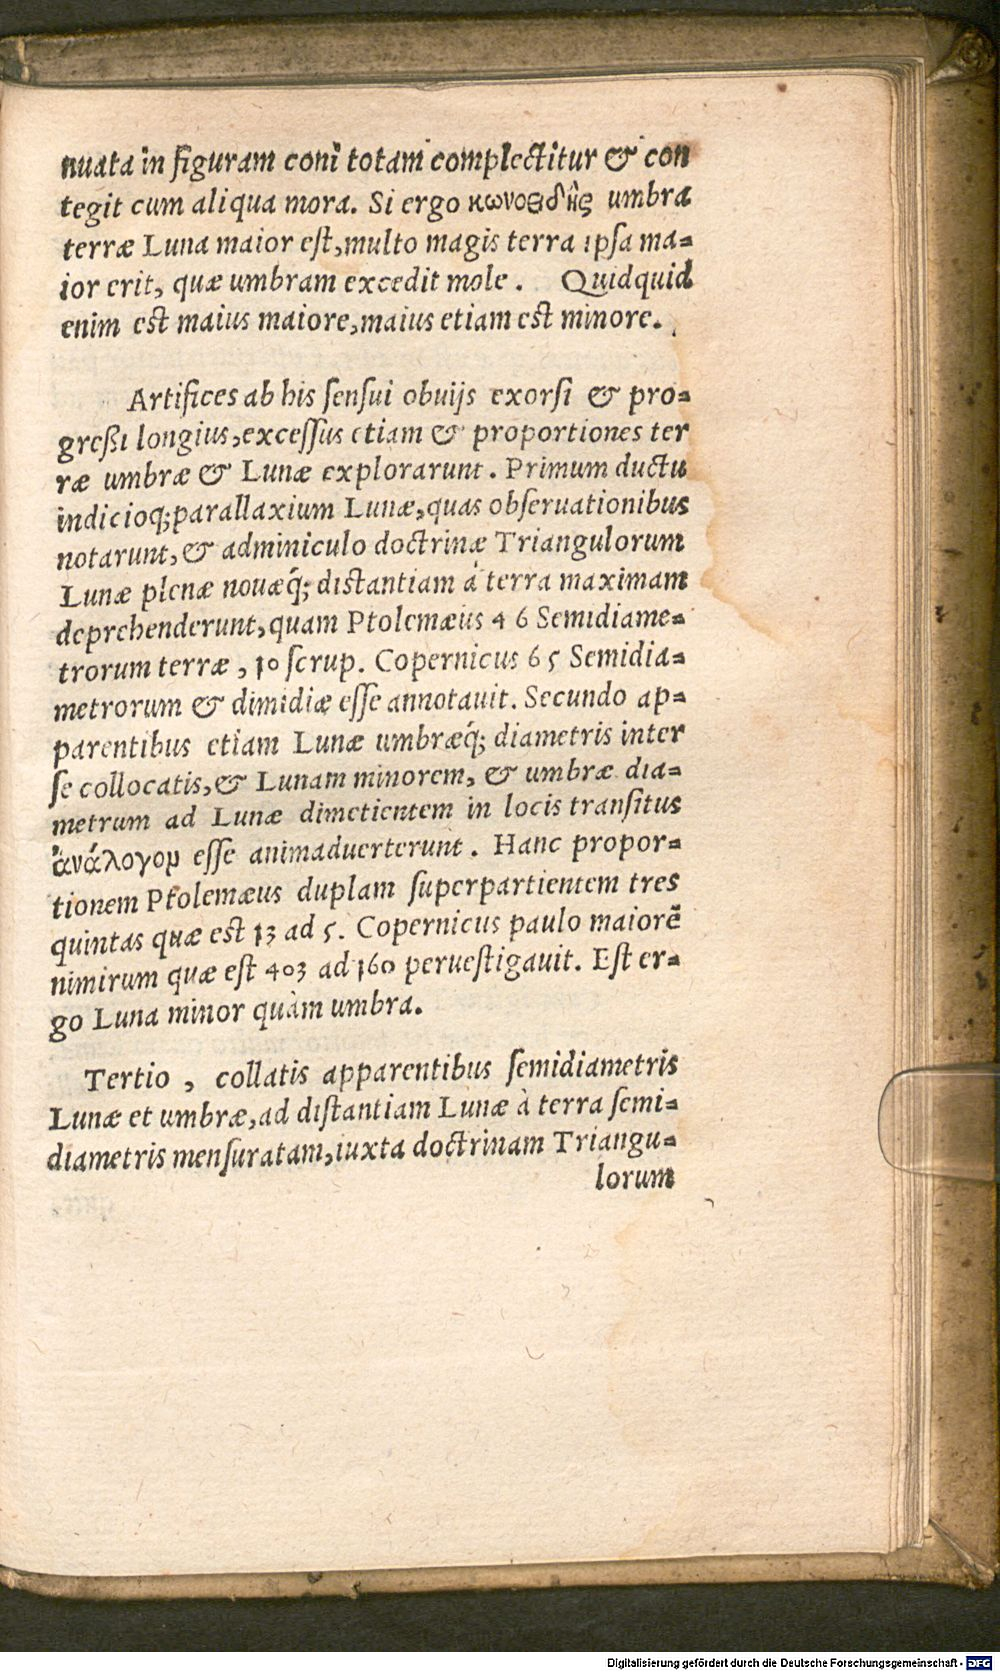 nuata in figuram coni totam complectitur & con
tegit cum aliqua mora. Si ergo κωνοειδὴς umbra
terræ Luna maior est, multo magis terra ipsa ma-
ior erit, quæ umbram excedit mole. Quidquid
enim est maius maiore, maius etiam est minore.
Artifices ab his sensui obuijs exorsi & pro-
greßi longius, excessus etiam & proportiones ter
ræ umbræ & Lunæ explorarunt. Primum ductu
indicioq; parallaxium Lunæ, quas obseruationibus
notarunt, & adminiculo doctrinæ Triangulorum
Lunæ plenæ nouæq́; distantiam à terra maximam
deprehenderunt, quam Ptolemæus 46 Semidiame-
trorum terræ, 10 scrup. Copernicus 65 Semidia-
metrorum & dimidiæ esse annotauit. Secundo ap-
parentibus etiam Lunæ umbræq́; diametris inter
se collocatis, & Lunam minorem, & umbræ dia-
metrum ad Lunæ dimetientem in locis transitus
ἀνάλογον esse animaduerterunt. Hanc propor-
tionem Ptolemæus duplam superpartientem tres
quintas quæ est 13 ad 5. Copernicus paulo maiorē
nimirum quæ est 403 ad 160 peruestigauit. Est er-
go Luna minor quàm umbra.
Tertio, collatis apparentibus semidiametris
Lunæ et umbræ, ad distantiam Lunæ à terra semi-
diametris mensuratam, iuxta doctrinam Triangu-
lorum
Digitalisierung gefördert durch die Deutsche Forschungsgemeinschaft - DFG